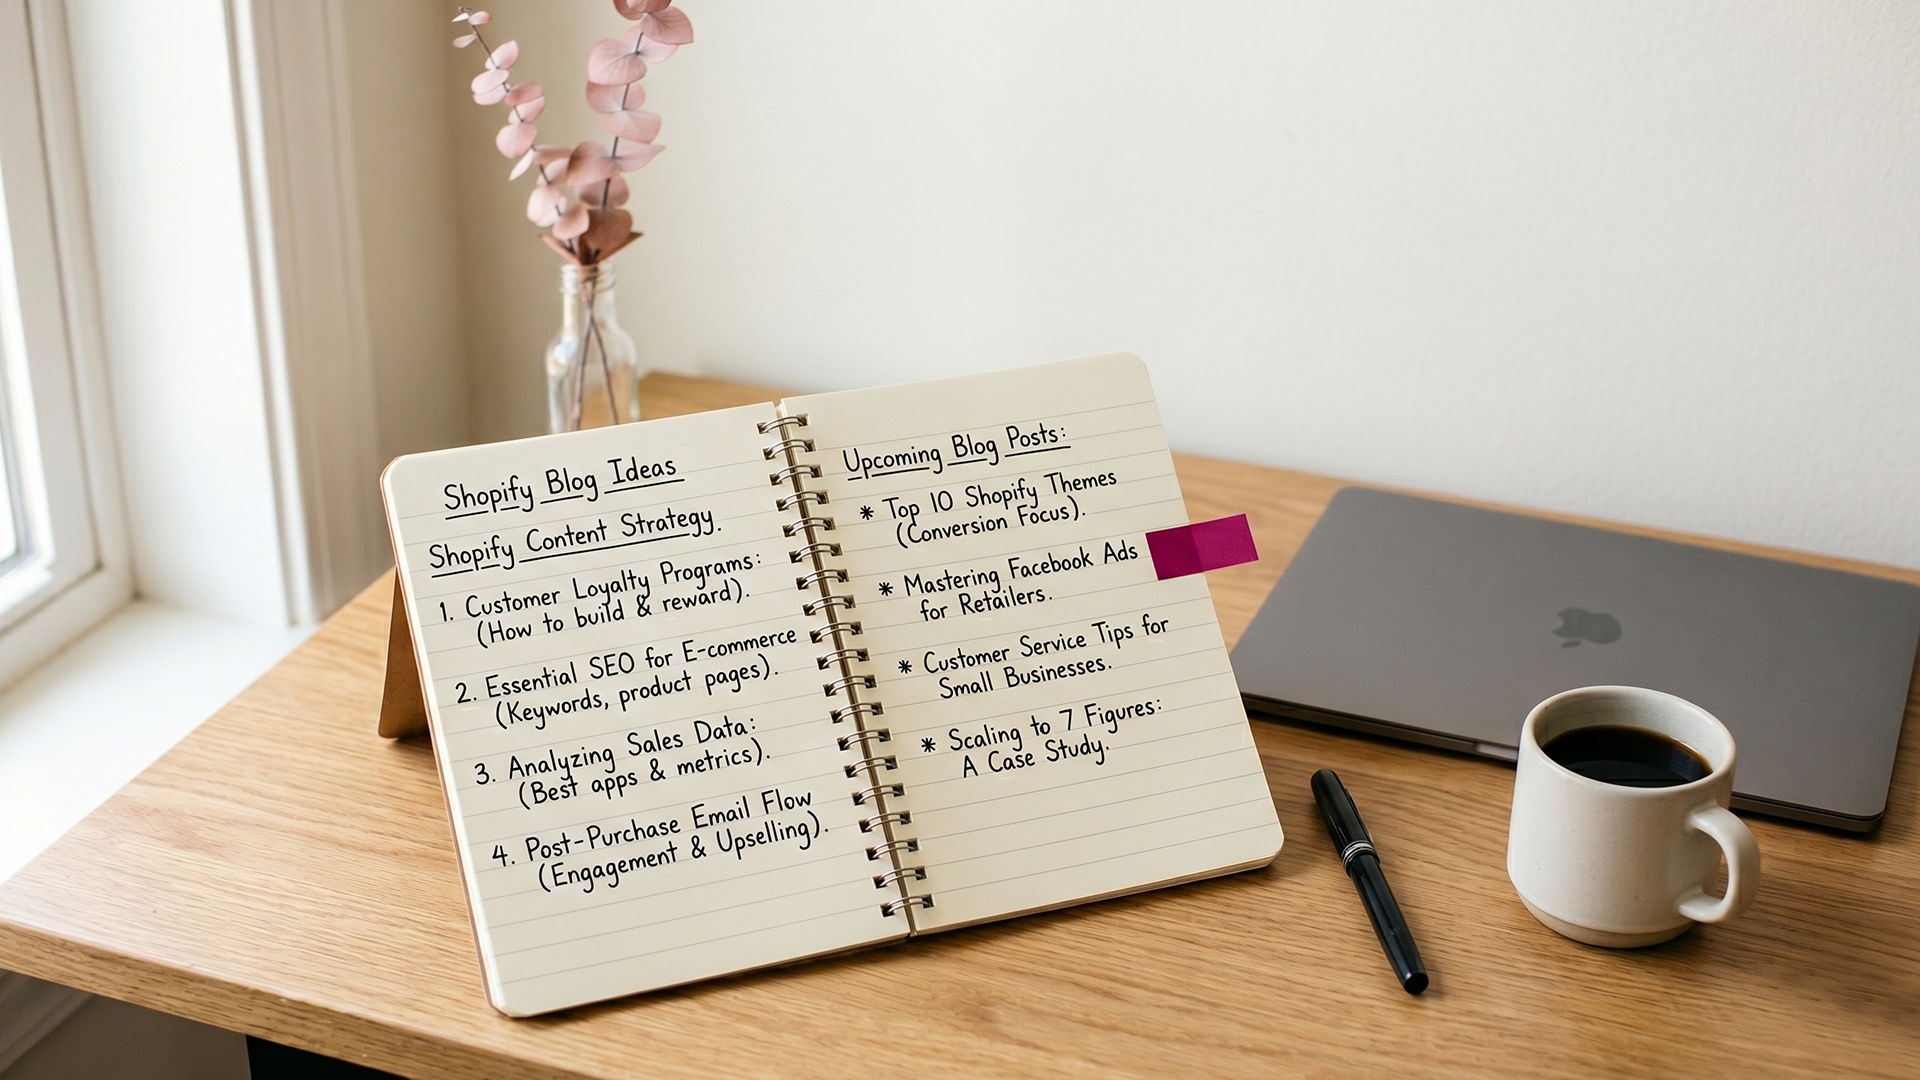 Shopify Blog Ideas
Shopify Content Strategy.
1. Customer Loyalty Programs:
(How to build & reward).
2. Essential SEO for E-commerce
(Keywords, product pages).
3. Analyzing Sales Data:
(Best apps & metrics).
4. Post-Purchase Email Flow
(Engagement & Upselling).
Upcoming Blog Posts:
* Top 10 Shopify Themes
(Conversion Focus).
* Mastering Facebook Ads
for Retailers.
* Customer Service Tips for
Small Businesses.
* Scaling to 7 Figures:
A Case Study.